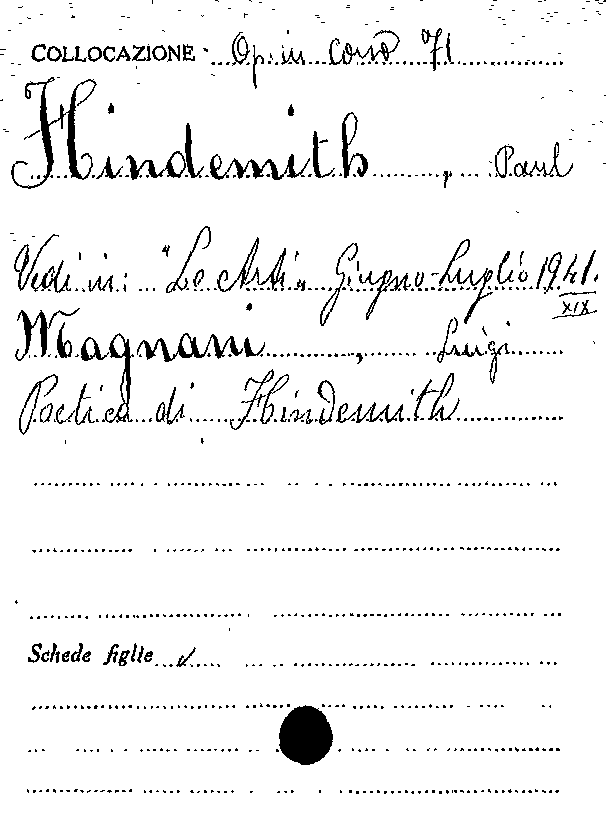 COLLOCAZIONE Op. in corso 71
Hindemith, Paul
Vedi in: "Le Arti" Giugno-Luglio 1941.
XIX
Magnani, Luigi
Poetica di Hindemith
Schede figlie ✓